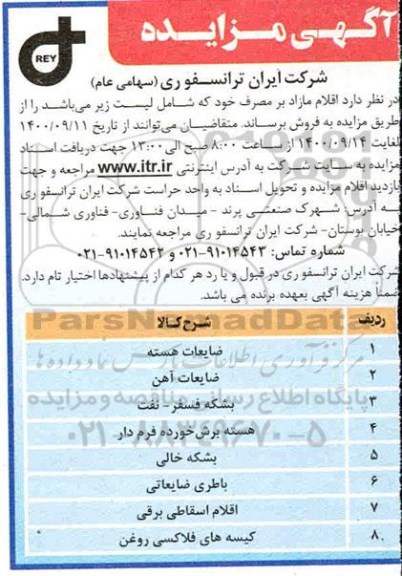 آگهی مزایده
REY
شرکت ایران ترانسفوری (سهامی عام)
در نظر دارد اقلام مازاد بر مصرف خود که شامل لیست زیر می‌باشد را از
طریق مزایده به فروش برساند. متقاضیان می‌توانند از تاریخ ۱۴۰۰/۰۹/۱۱
لغایت ۱۴۰۰/۰۹/۱۴ از ساعت ۸:۰۰ صبح الی ۱۳:۰۰ جهت دریافت اسناد
مزایده به سایت شرکت به آدرس اینترنتی www.itr.ir مراجعه و جهت
بازدید اقلام مزایده و تحویل اسناد به واحد حراست شرکت ایران ترانسفو ری
به آدرس: شهرک صنعتی پرند - میدان فناوری- فناوری شمالی-
خیابان بوستان- شرکت ایران ترانسفو ری مراجعه نمایند.
شماره تماس: ۹۱۰۱۴۵۴۳-۰۲۱ و ۹۱۰۱۴۵۴۲-۰۲۱
شرکت ایران ترانسفو ری در قبول و یا رد هر کدام از پیشنهادها اختیار تام دارد.
ضمناً هزینه آگهی بعهده برنده می باشد.
ردیف شرح کالا
۱ ضایعات هسته
۲ ضایعات آهن
۳ بشکه فسفر - نفت
۴ هسته برش خورده فرم دار
۵ بشکه خالی
۶ باطری ضایعاتی
۷ اقلام اسقاطی برقی
۸ کیسه های فلاکسی روغن
ParsNamadData
پایگاه اطلاع رسانی مناقصه و مزایده
۰۲۱-۸۸۳۴۹۶۷۰-۵